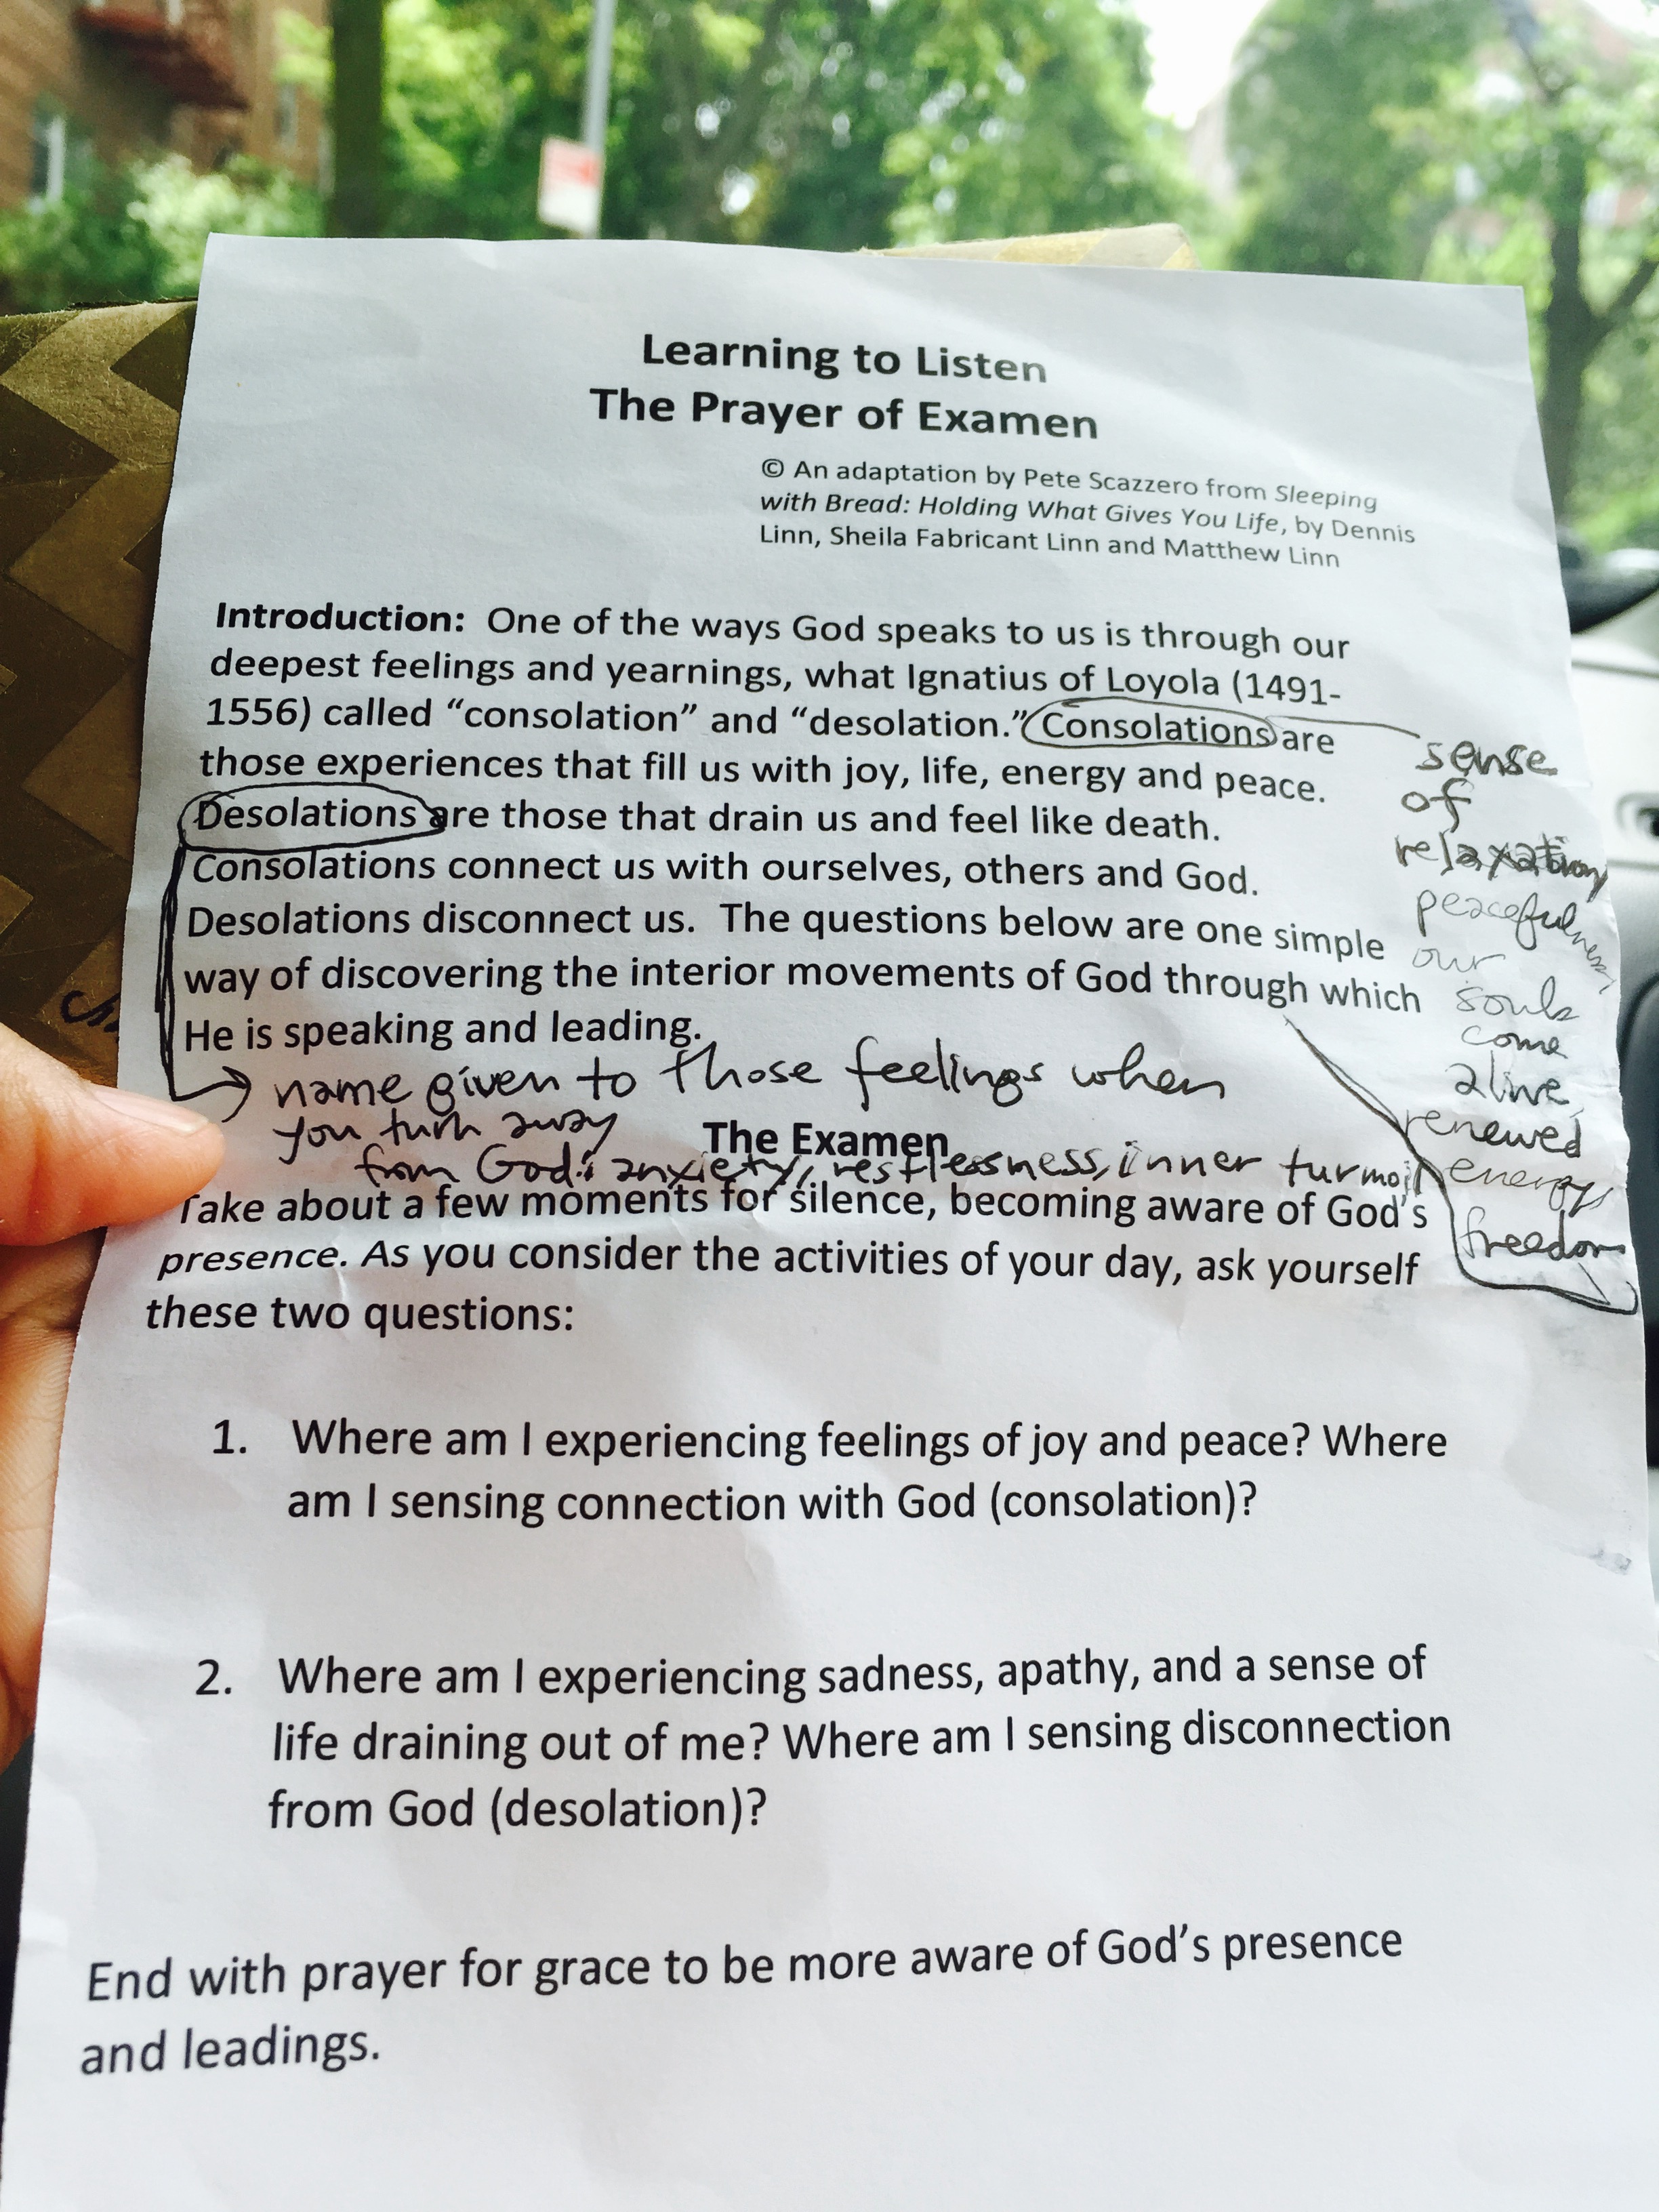 Learning to Listen
The Prayer of Examen
© An adaptation by Pete Scazzero from Sleeping
with Bread: Holding What Gives You Life, by Dennis
Linn, Sheila Fabricant Linn and Matthew Linn
Introduction: One of the ways God speaks to us is through our
deepest feelings and yearnings, what Ignatius of Loyola (1491-
1556) called “consolation” and “desolation.” Consolations are
those experiences that fill us with joy, life, energy and peace.
Desolations are those that drain us and feel like death.
Consolations connect us with ourselves, others and God.
Desolations disconnect us. The questions below are one simple
way of discovering the interior movements of God through which
He is speaking and leading.
sense
of
relaxation
peacefulness,
our
souls
come
alive,
renewed
energy
freedom
name given to those feelings when
you turn away
from God: anxiety, restlessness, inner turmoil
The Examen
Take about a few moments for silence, becoming aware of God's
presence. As you consider the activities of your day, ask yourself
these two questions:
1. Where am I experiencing feelings of joy and peace? Where
am I sensing connection with God (consolation)?
2. Where am I experiencing sadness, apathy, and a sense of
life draining out of me? Where am I sensing disconnection
from God (desolation)?
End with prayer for grace to be more aware of God's presence
and leadings.